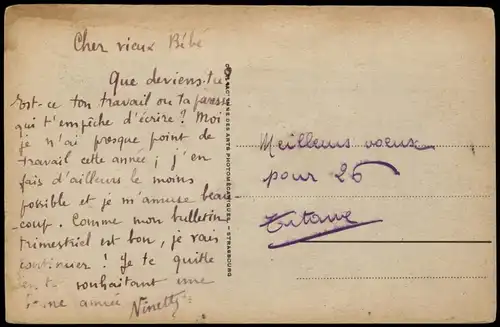 Cher vieux Bébé
Que deviens-tu
Est-ce ton travail ou ta paresse
qui t'empêche d'écrire ? Moi
je n'ai presque point de
travail cette année ; j'en
fais d'ailleurs le moins
possible et je m'amuse beau-
-coup. Comme mon bulletin
trimestriel est bon, je vais
continuer ! Je te quitte
en te souhaitant une
bonne année Ninette
ARTS PHOTOMÉCANIQUES - STRASBOURG
Meilleurs voeux
pour 26
Titane